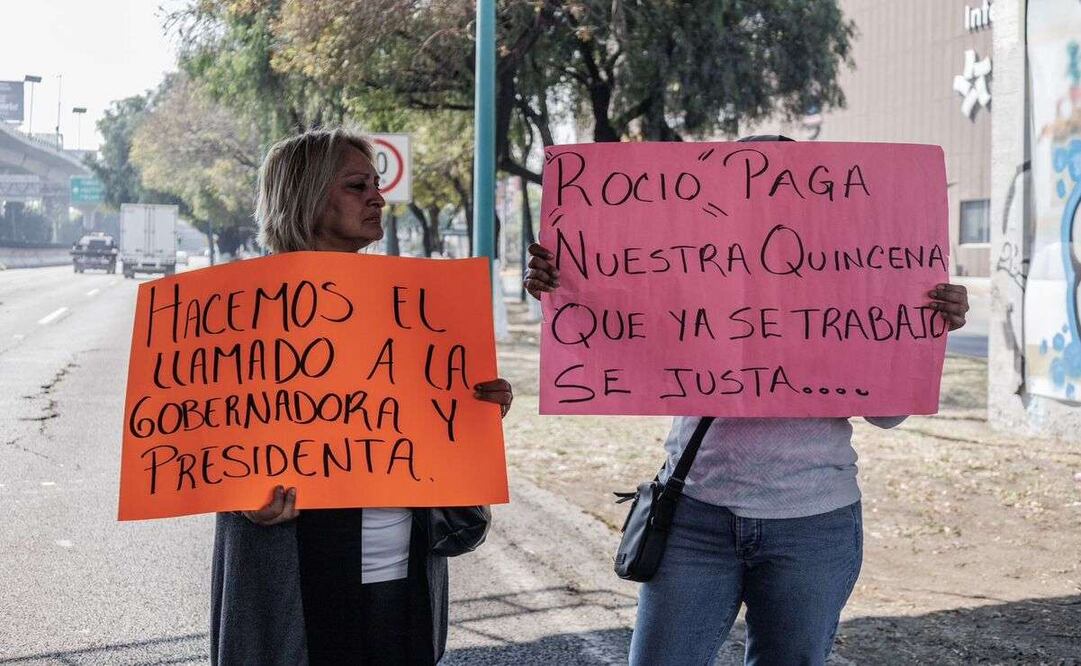 HACEMOS EL
LLAMADO A LA
GOBERNADORA Y
PRESIDENTA.
"ROCIO" PAGA
"NUESTRA QUINCENA
QUE YA SE TRABAJO
SE JUSTA....
Inte